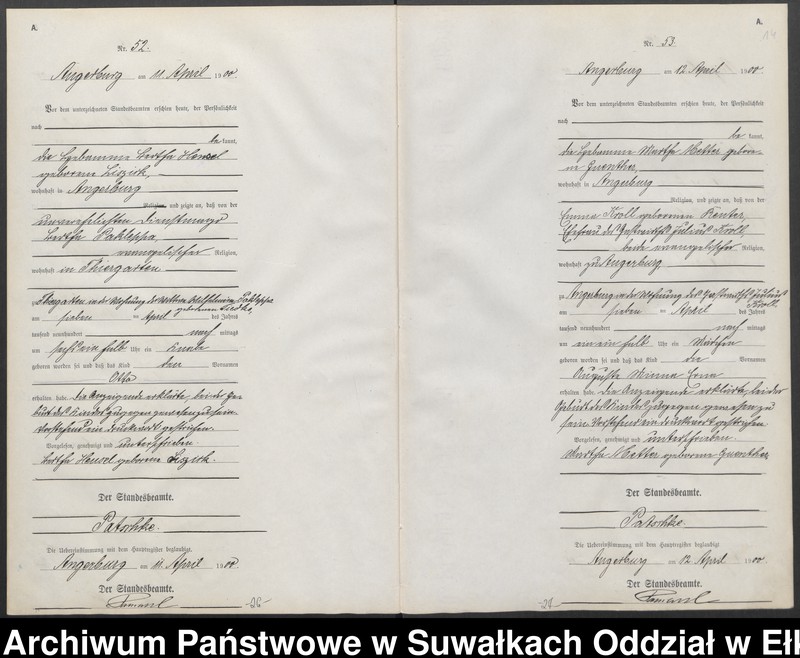 A.
Nr. 52.
Angerburg am 11. April 1900.
Vor dem unterzeichneten Standesbeamten erschien heute, der Persönlichkeit
nach
be kannt,
die Hebamme Bertha Hensel
geborene Liszick,
wohnhaft in Angerburg
Religion, und zeigte an, daß von der
unverehelichten Dienstmagd
Bertha Pakleppa,
evangelischer Religion,
wohnhaft in Thiergarten
Thiergarten in der Wohnung der Wittwe Wilhelmine Paklappa
geborenen
am sieben ten April des Jahres
tausend neunhundert nach mittags
um sechs ein halb Uhr ein Knabe
geboren worden sei und daß das Kind den Vornamen
Otto
erhalten habe. Die Anzeigende erklärte, bei der Ge-
burt des Kindes zugegen gewesen zu sein.
Vorstehend ein Druckwort gestrichen.
Vorgelesen, genehmigt und unterschrieben.
Bertha Hensel geborene Liszick.
Der Standesbeamte.
Patschke.
Die Uebereinstimmung mit dem Hauptregister beglaubigt.
Angerburg am 11. April 1900
Der Standesbeamte.
-26-
A.
14
Nr. 53.
Angerburg am 12. April 1900.
Vor dem unterzeichneten Standesbeamten erschien heute, der Persönlichkeit
nach
be kannt,
die Hebamme Martha Metter gebore-
ne Guenther,
wohnhaft in Angerburg
Religion, und zeigte an, daß von der
Emma Kroll geborenen Renter,
Ehefrau des Gastwirths Julius Kroll,
beide evangelischer Religion,
wohnhaft zu Angerburg
zu Angerburg in der Wohnung des Gastwirths Julius
Kroll
am sieben ten April des Jahres
tausend neunhundert nach mittags
um ein ein halb Uhr ein Mädchen
geboren worden sei und daß das Kind die Vornamen
Auguste Minna Erna
erhalten habe. Die Anzeigende erklärte, bei der
Geburt des Kindes zugegen gewesen zu
sein. Vorstehend ein Druckwort gestrichen
Vorgelesen, genehmigt und unterschrieben.
Martha Metter geborene Guenther
Der Standesbeamte.
Patschke.
Die Uebereinstimmung mit dem Hauptregister beglaubigt
Angerburg am 12. April 1900.
Der Standesbeamte.
-27-
Archiwum Państwowe w Suwałkach Oddział w Ełk